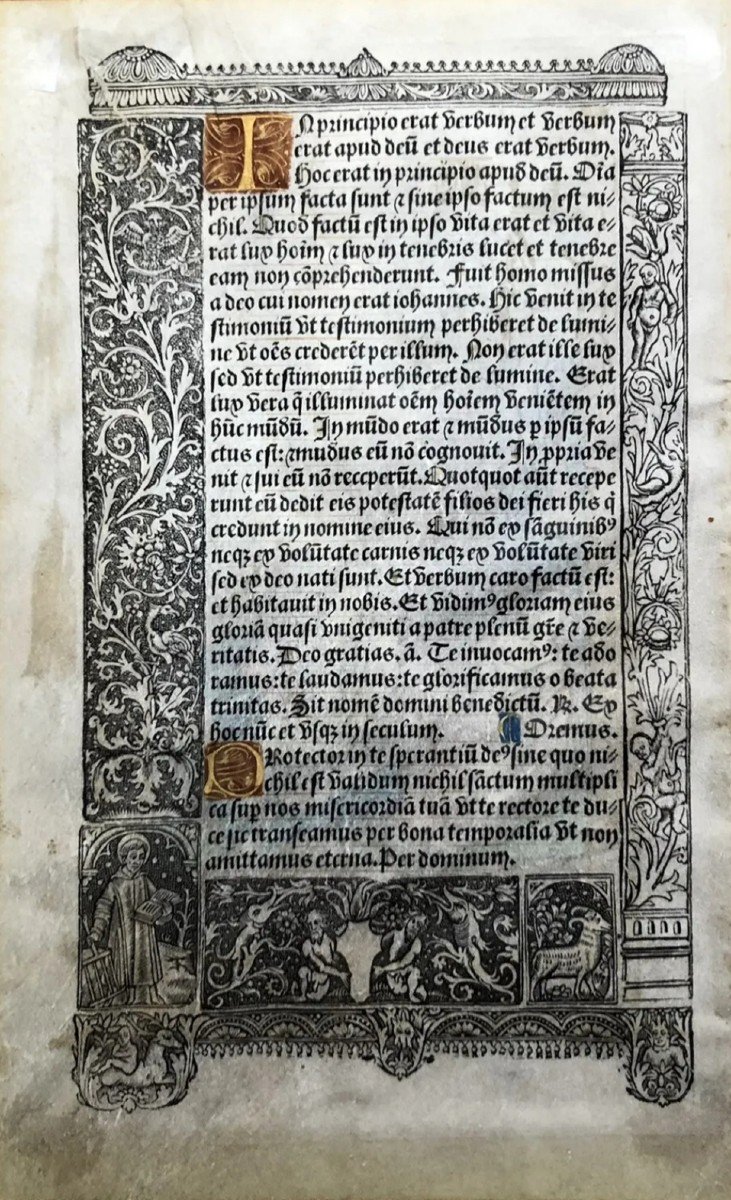 IN principio erat verbum et verbum
erat apud deū et deus erat verbum.
Hoc erat in principio apud deū. Oīa
per ipsum facta sunt ⁊ sine ipso factum est ni⸗
chil. Quod factū est in ipso vita erat et vita e⸗
rat lux hoīm ⁊ lux in tenebris lucet et tenebre
eam non cōprehenderunt. Fuit homo missus
a deo cui nomen erat iohannes. Hic venit in te
stimoniū vt testimonium perhiberet de lumi⸗
ne vt oēs crederēt per illum. Non erat ille lux
sed vt testimoniū perhiberet de lumine. Erat
lux vera q̄ illuminat oēm hoīem veniētem in
hūc mūdū. In mūdo erat ⁊ mūdus ꝑ ipsū fa⸗
ctus est: ⁊ mūdus eū nō cognouit. In ꝓpria ve
nit ⁊ sui eū nō recceperūt. Quotquot aūt recepe
runt eū dedit eis potestatē filios dei fieri his q̄
credunt in nomine eius. Qui nō ex sāguinibꝰ
neqꝫ ex volūtate carnis neqꝫ ex volūtate viri
sed ex deo nati sunt. Et verbum caro factū est:
et habitauit in nobis. Et vidimꝰ gloriam eius
gloriā quasi vnigeniti a patre plenū gr̄e ⁊ ve⸗
ritatis. Deo gratias. ā. Te inuocamꝰ: te ado
ramus: te laudamus: te glorificamus o beata
trinitas. Sit nomē domini benedictū. ℟. Ex
hoc nūc et vsqꝫ in seculum. Oremus.
PRotector in te sperantiū deꝰ sine quo ni⸗
chil est validum nichil sāctum multipli
ca suꝑ nos misericordiā tuā vt te rectore te du⸗
ce sic transeamus per bona temporalia vt non
amittamus eterna. Per dominum.